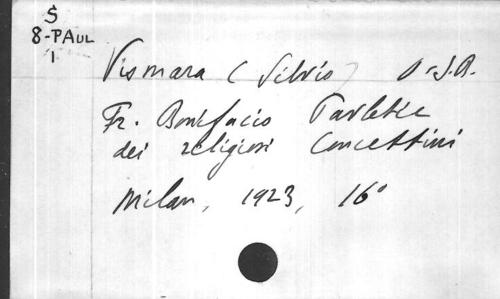 S
8-PAUL
1
Vismara (Silvio)
Fr. Bonifacio Pavletic
dei religiosi Concettini
Milan, 1923, 16°